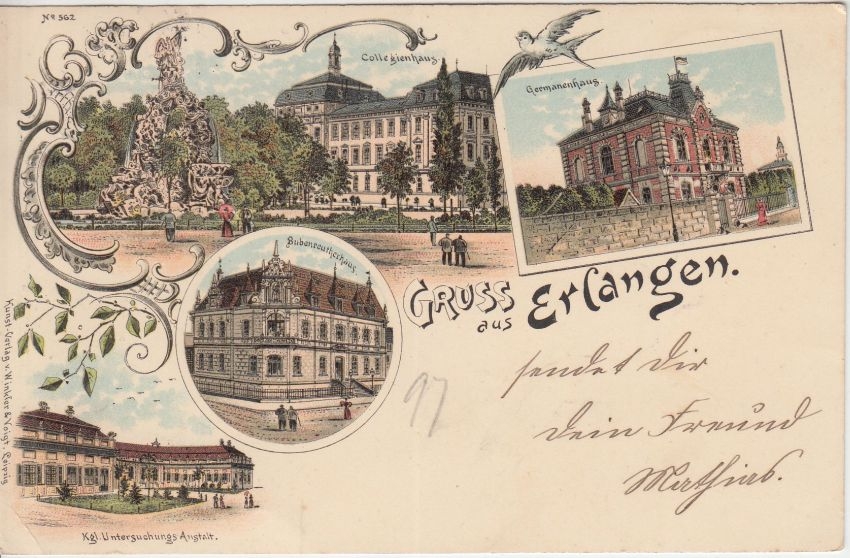 No 562
Collegienhaus
Germanenhaus.
Bubenreutherhaus
GRUSS
aus
Erlangen.
sendet dir
dein Freund
Mathias.
97
Kgl. Untersuchungs Anstalt.
Kunst-Verlag v. Winkler & Voigt. Leipzig